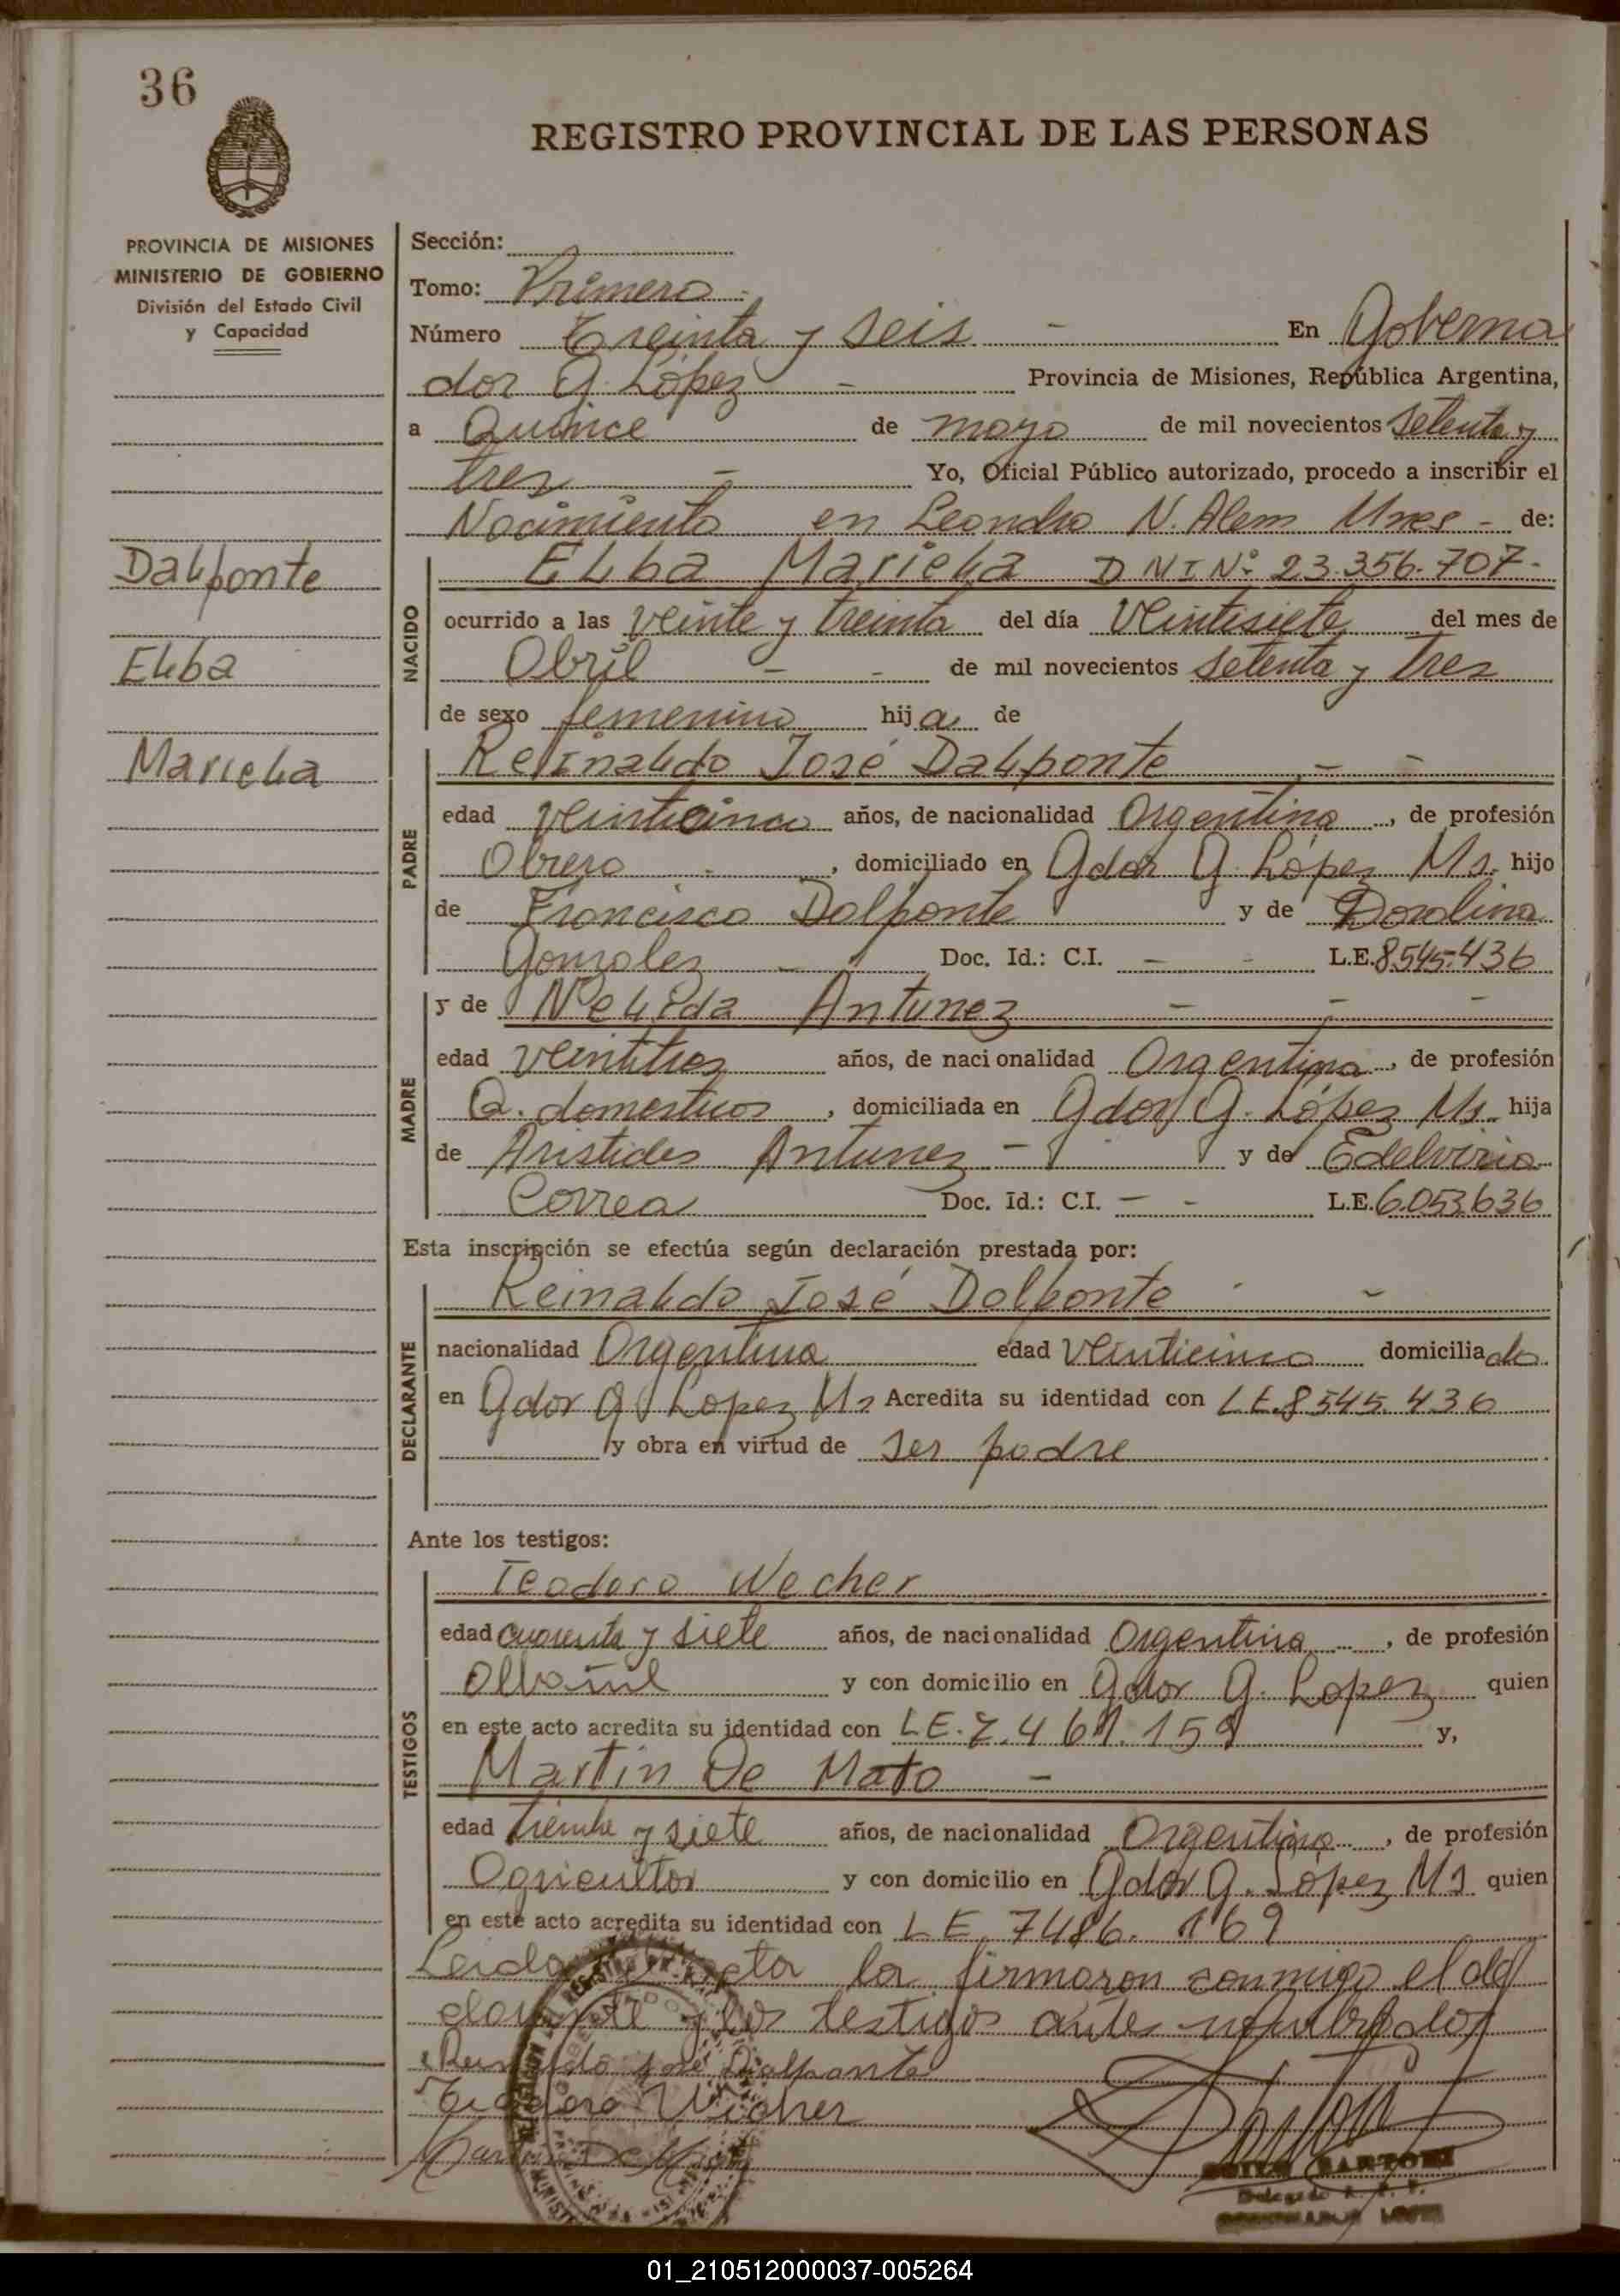 36
REGISTRO PROVINCIAL DE LAS PERSONAS
PROVINCIA DE MISIONES
MINISTERIO DE GOBIERNO
División del Estado Civil
y Capacidad
Dalponte
Elba
Mariela
Sección:
Tomo: Primero
Número Treinta y seis - En Goberna
dor G. López - Provincia de Misiones, República Argentina,
a Quince de mayo de mil novecientos setenta y
tres - Yo, Oficial Público autorizado, procedo a inscribir el
Nacimiento en Leandro N. Alem Mnes - de:
NACIDO
Elba Mariela DNI Nº 23.356.707-
ocurrido a las veinte y treinta del día Veintisiete del mes de
Abril - - de mil novecientos setenta y tres
de sexo femenino hija de
PADRE
Reinaldo José Dalponte - -
edad veinticinco años, de nacionalidad Argentina, de profesión
Obrero, domiciliado en Gdor G. López Ms. hijo
de Francisco Dalponte y de Dorolina
Gonzalez - Doc. Id.: C.I. - - L.E. 8.545.436
MADRE
y de Nelida Antunez - - -
edad veintitres años, de nacionalidad Argentina, de profesión
Q. domesticos, domiciliada en Gdor G. López Ms. hija
de Aristides Antunez - y de Edelviria
Correa Doc. Id.: C.I. - - L.E. 6.053.636
Esta inscripción se efectúa según declaración prestada por:
DECLARANTE
Reinaldo José Dalponte - -
nacionalidad Argentina edad veinticinco domiciliado
en Gdor G. Lopez Ms Acredita su identidad con L.E. 8545.436
y obra en virtud de ser padre
Ante los testigos:
TESTIGOS
Teodoro Wecher
edad cuarenta y siete años, de nacionalidad Argentina, de profesión
Albañil y con domicilio en Gdor G. Lopez quien
en este acto acredita su identidad con L.E. 7.461.159 y,
Martin De Mato -
edad treinta y siete años, de nacionalidad Argentina, de profesión
Agricultor y con domicilio en Gdor G. López Ms quien
en este acto acredita su identidad con L E 7486.169
Leida el acta la firmaron conmigo el de
clarante y los testigos antes nombrados
Reinaldo José Dalponte
Teodoro Wecher
Martin De Mato
BARTONI
Delegado R. P. P.
GOBERNADOR LOPEZ
01_210512000037-005264